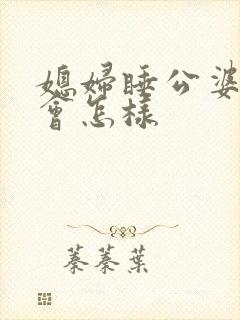 媳婦睡公婆
會怎樣
蓁蓁葉